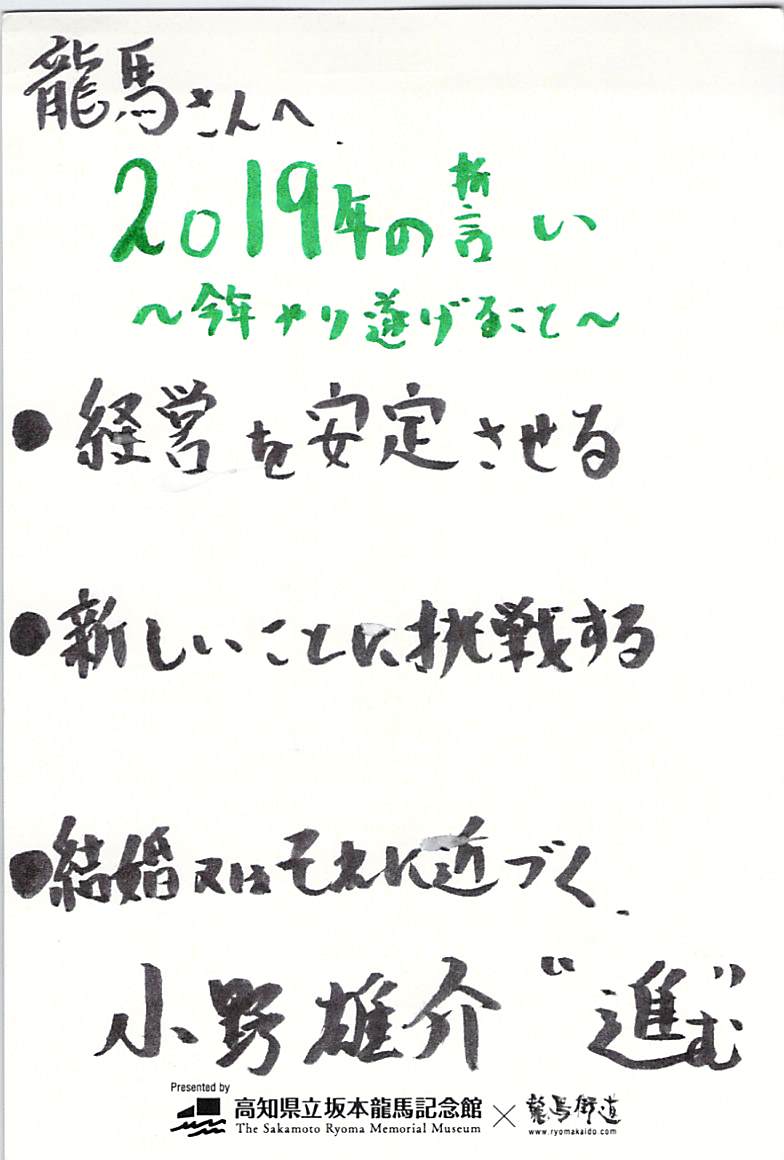 龍馬さんへ
2019年の誓い
～今年やり遂げること～
●経営を安定させる
●新しいことに挑戦する
●結婚又はそれに近づく
小野雄介 “進む”
Presented by
高知県立坂本龍馬記念館 × 龍馬街道
The Sakamoto Ryoma Memorial Museum www.ryomakaido.com